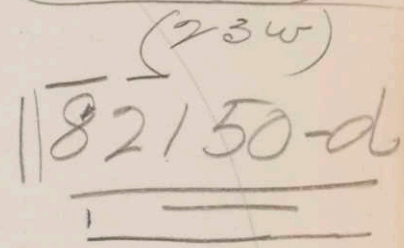 (23w)
||82150-d